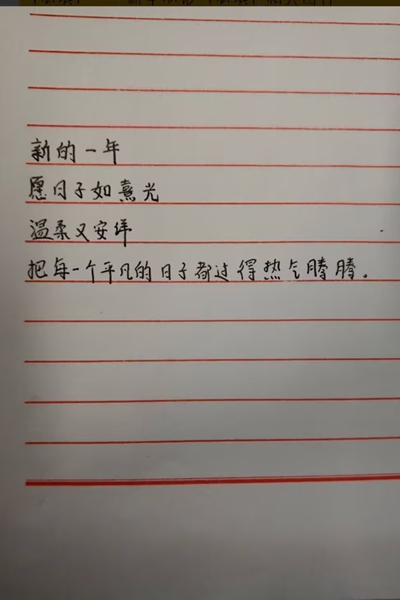 新的一年
愿日子如熹光
温柔又安详
把每一个平凡的日子都过得热气腾腾。